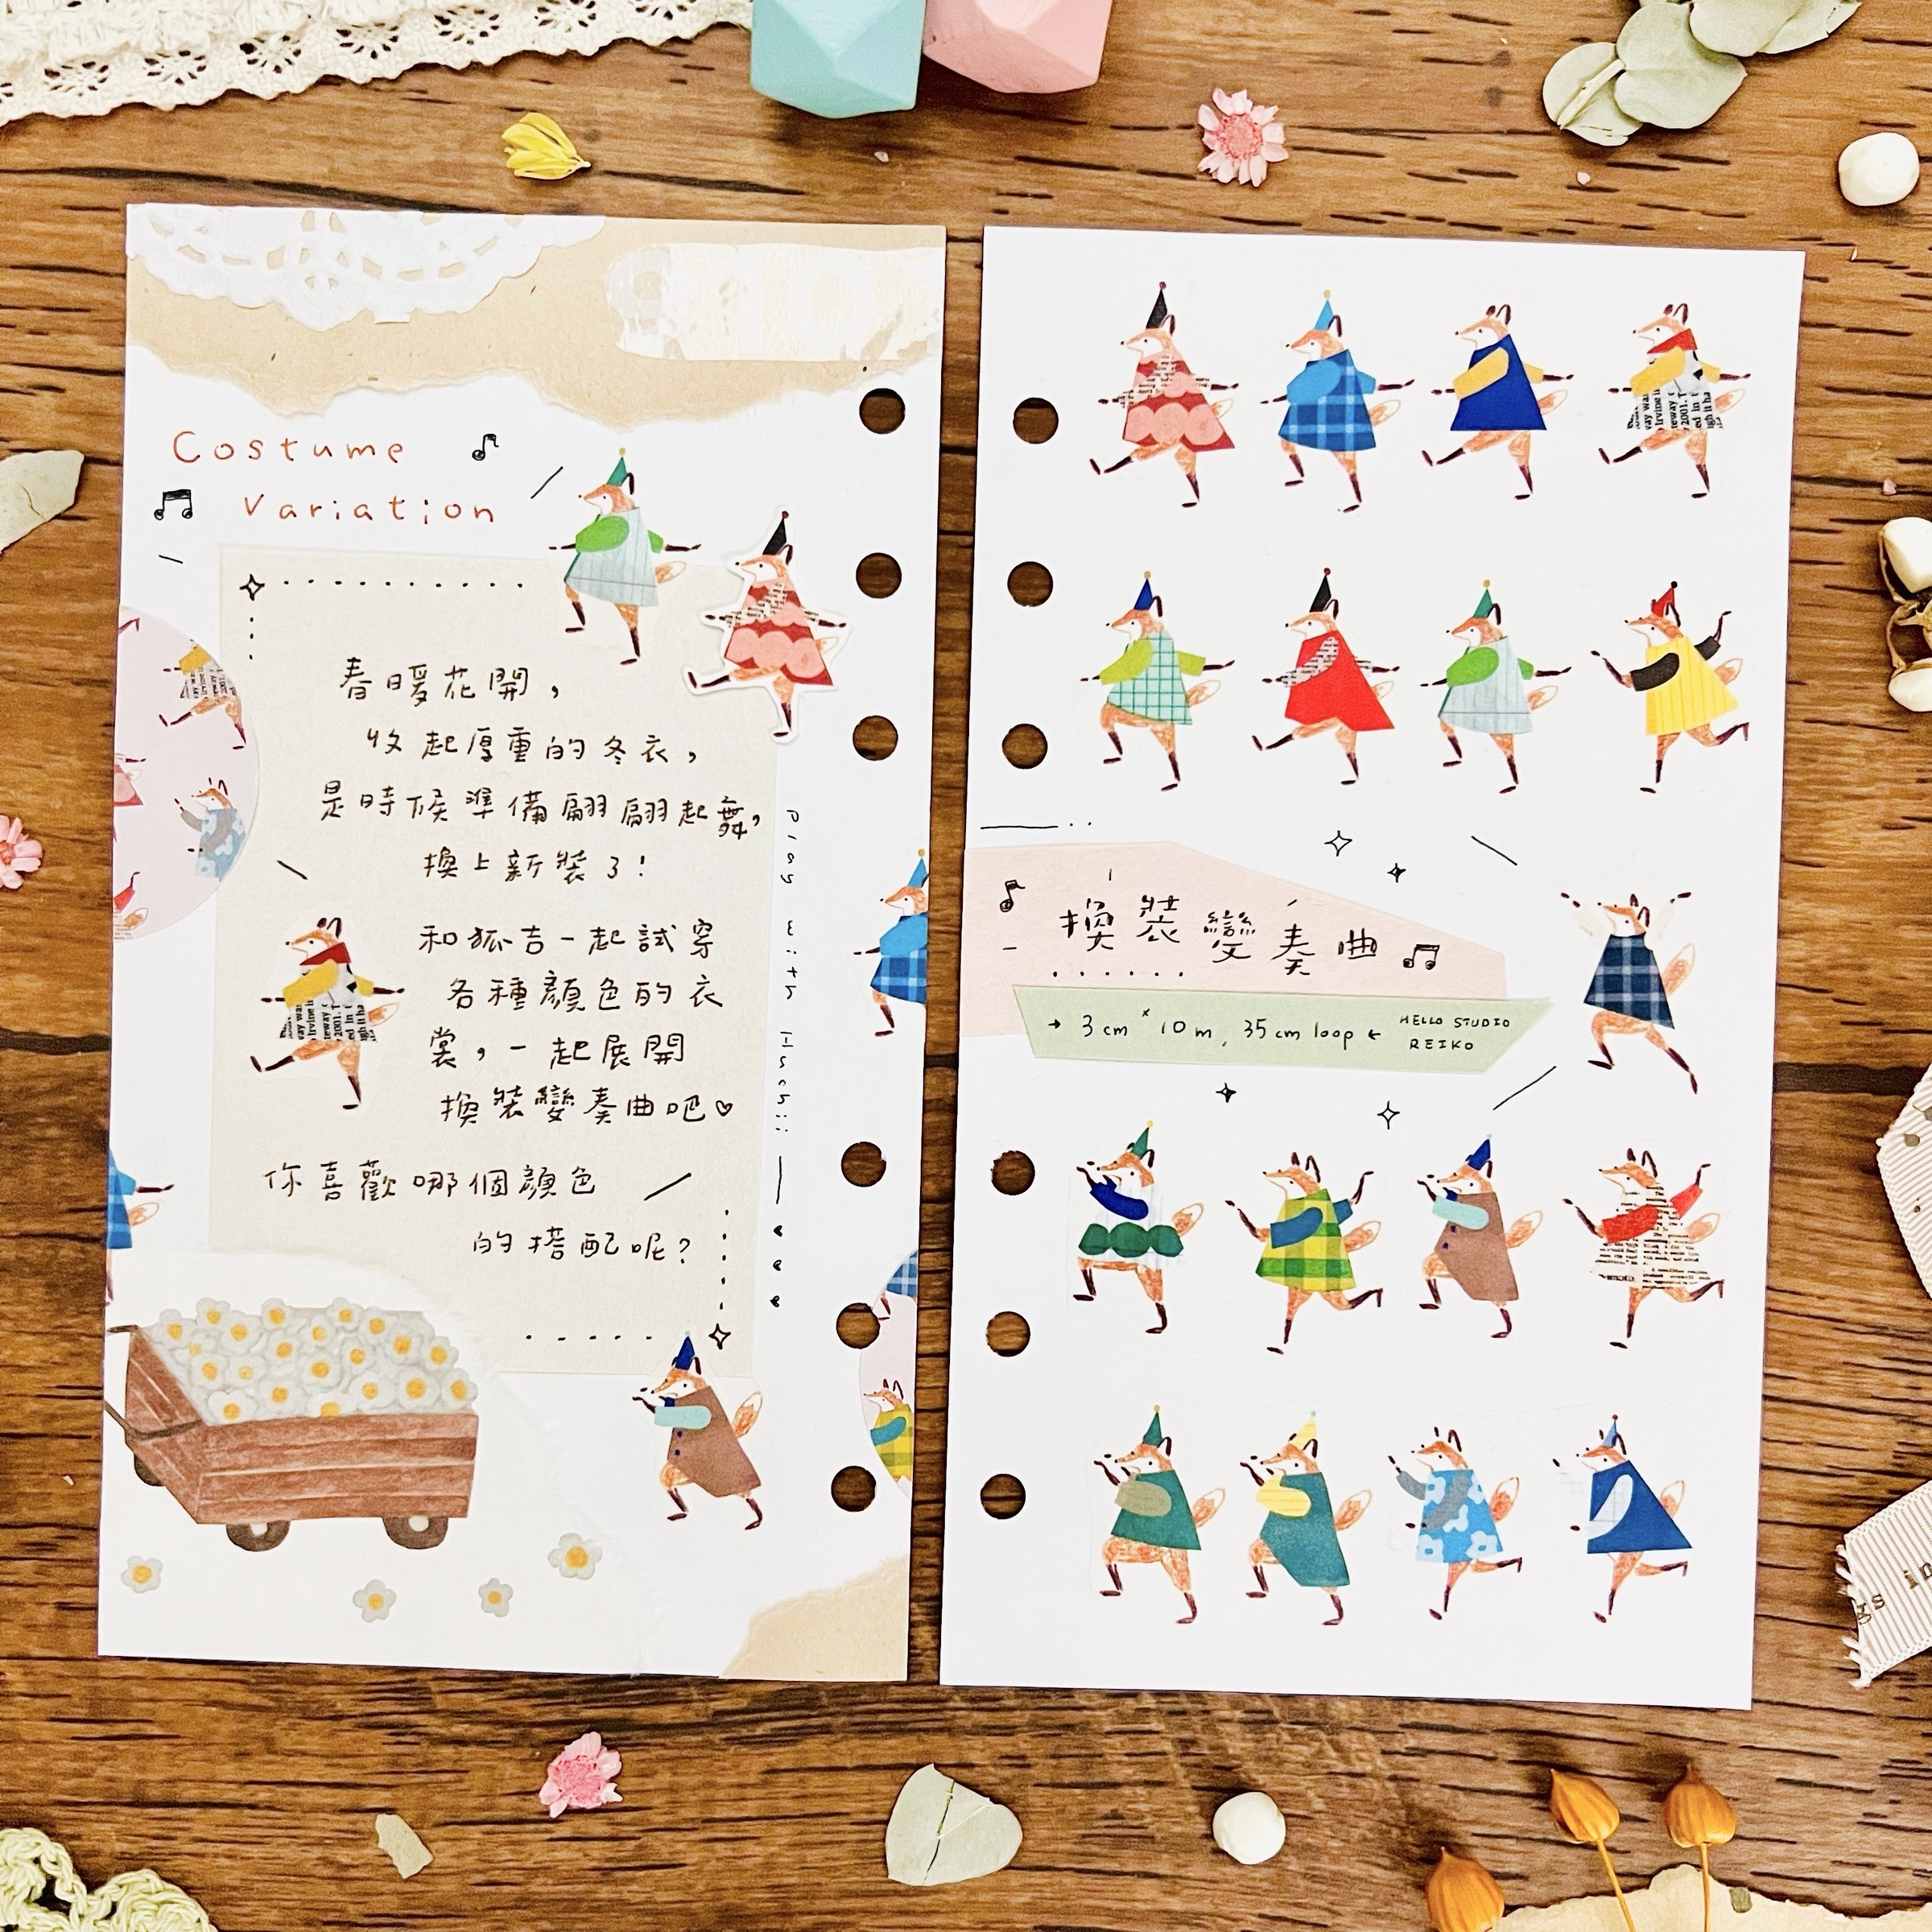 Costume
Variation
春暖花開，
收起厚重的冬衣，
是時候準備翩翩起舞，
換上新裝了！
和狐吉一起試穿
各種顏色的衣
裳，一起展開
換裝變奏曲吧♡
你喜歡哪個顏色
的搭配呢？
play with Huchii
換裝變奏曲
→ 3cm × 10m, 35cm loop ←
HELLO STUDIO
REIKO